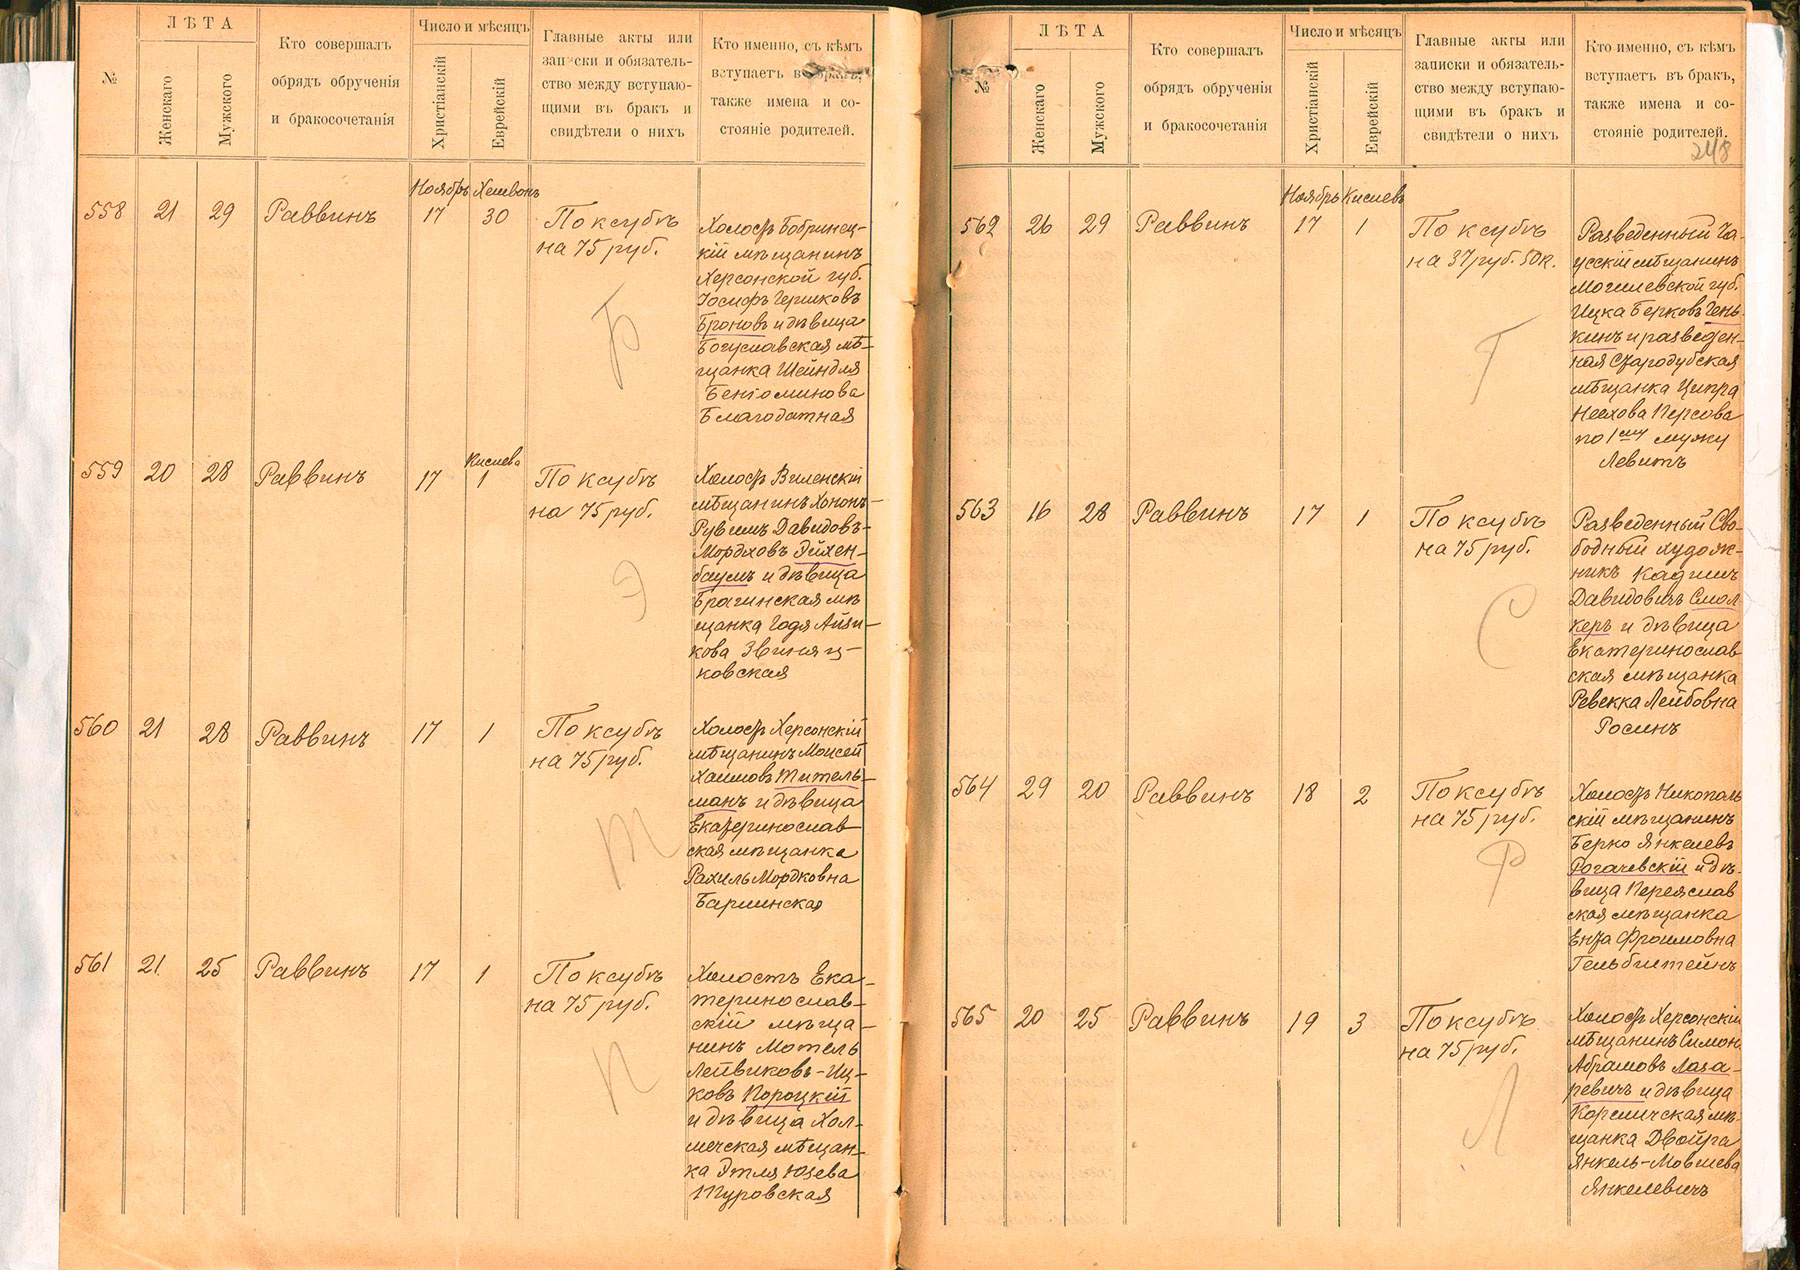 №
ЛѢТА
Женскаго
Мужского
Кто совершалъ
обрядъ обрученія
и бракосочетанія
Число и мѣсяцъ
Христіанскій
Еврейскій
Главные акты или
записки и обязатель-
ство между вступаю-
щими въ бракъ и
свидѣтели о нихъ
Кто именно, съ кѣмъ
вступаетъ въ бракъ,
также имена и со-
стояніе родителей.
Ноябрь Хешвонъ
558 21 29 Раввинъ 17 30 По ксубѣ
на 75 руб.
Холостъ Бобринец-
кій мѣщанинъ
Херсонской губ.
Іосифъ Гершковъ
Броновъ и дѣвица
Богуславская мѣ-
щанка Шейндля
Беніоминова
Благодатная
Б
Кислева
559 20 28 Раввинъ 17 1 По ксубѣ
на 75 руб.
Холостъ Виленскій
мѣщанинъ Хононъ-
Рувимъ Давидовъ-
Мордховъ Эйхен-
баумъ и дѣвица
Брагинская мѣ
щанка Годя Айзи-
кова Звиняц-
ковская
Э
560 21 28 Раввинъ 17 1 По ксубѣ
на 75 руб.
Холостъ Херсонскій
мѣщанинъ Моисей
Хаимовъ Титель-
манъ и дѣвица
Екатеринослав-
ская мѣщанка
Рахиль Мордковна
Баршинская
Т
561 21 25 Раввинъ 17 1 По ксубѣ
на 75 руб.
Холостъ Ека-
теринослав-
скій мѣща-
нинъ Мотель
Лейвиковъ-Иц-
ковъ Пороцкій
и дѣвица Хол-
мечская мѣщан-
ка Этля Юзева
Шуровская
П
№
ЛѢТА
Женскаго
Мужского
Кто совершалъ
обрядъ обрученія
и бракосочетанія
Число и мѣсяцъ
Христіанскій
Еврейскій
Главные акты или
записки и обязатель-
ство между вступаю-
щими въ бракъ и
свидѣтели о нихъ
Кто именно, съ кѣмъ
вступаетъ въ бракъ,
также имена и со-
стояніе родителей.
248
Ноябрь Кислевъ
562 26 29 Раввинъ 17 1 По ксубѣ
на 37 руб. 50 к.
Разведенный Ча-
усскій мѣщанинъ
Могилевской губ.
Ицка Берковъ Гень-
кинъ и разведен-
ная Стародубская
мѣщанка Ципра
Ноахова Персова
по 1му мужу
Левитъ
Г
563 16 28 Раввинъ 17 1 По ксубѣ
на 75 руб.
Разведенный Сво-
бодный худож-
никъ Кадишъ
Давидовичъ Смол-
керъ и дѣвица
Екатеринослав
ская мѣщанка
Ревекка Лейбовна
Росинъ
С
564 29 20 Раввинъ 18 2 По ксубѣ
на 75 руб.
Холостъ Никополь
скій мѣщанинъ
Берко Янкелевъ
Рогачевскій и дѣ-
вица Переяслав
ская мѣщанка
Ента Фроимовна
Гельбштейнъ
Р
565 20 25 Раввинъ 19 3 По ксубѣ
на 75 руб.
Холостъ Херсонскій
мѣщанинъ Симонъ
Абрамовъ Лаза-
ревичъ и дѣвица
Кореличская мѣ-
щанка Двойра
Янкель-Мовшева
Янкелевичъ
Л